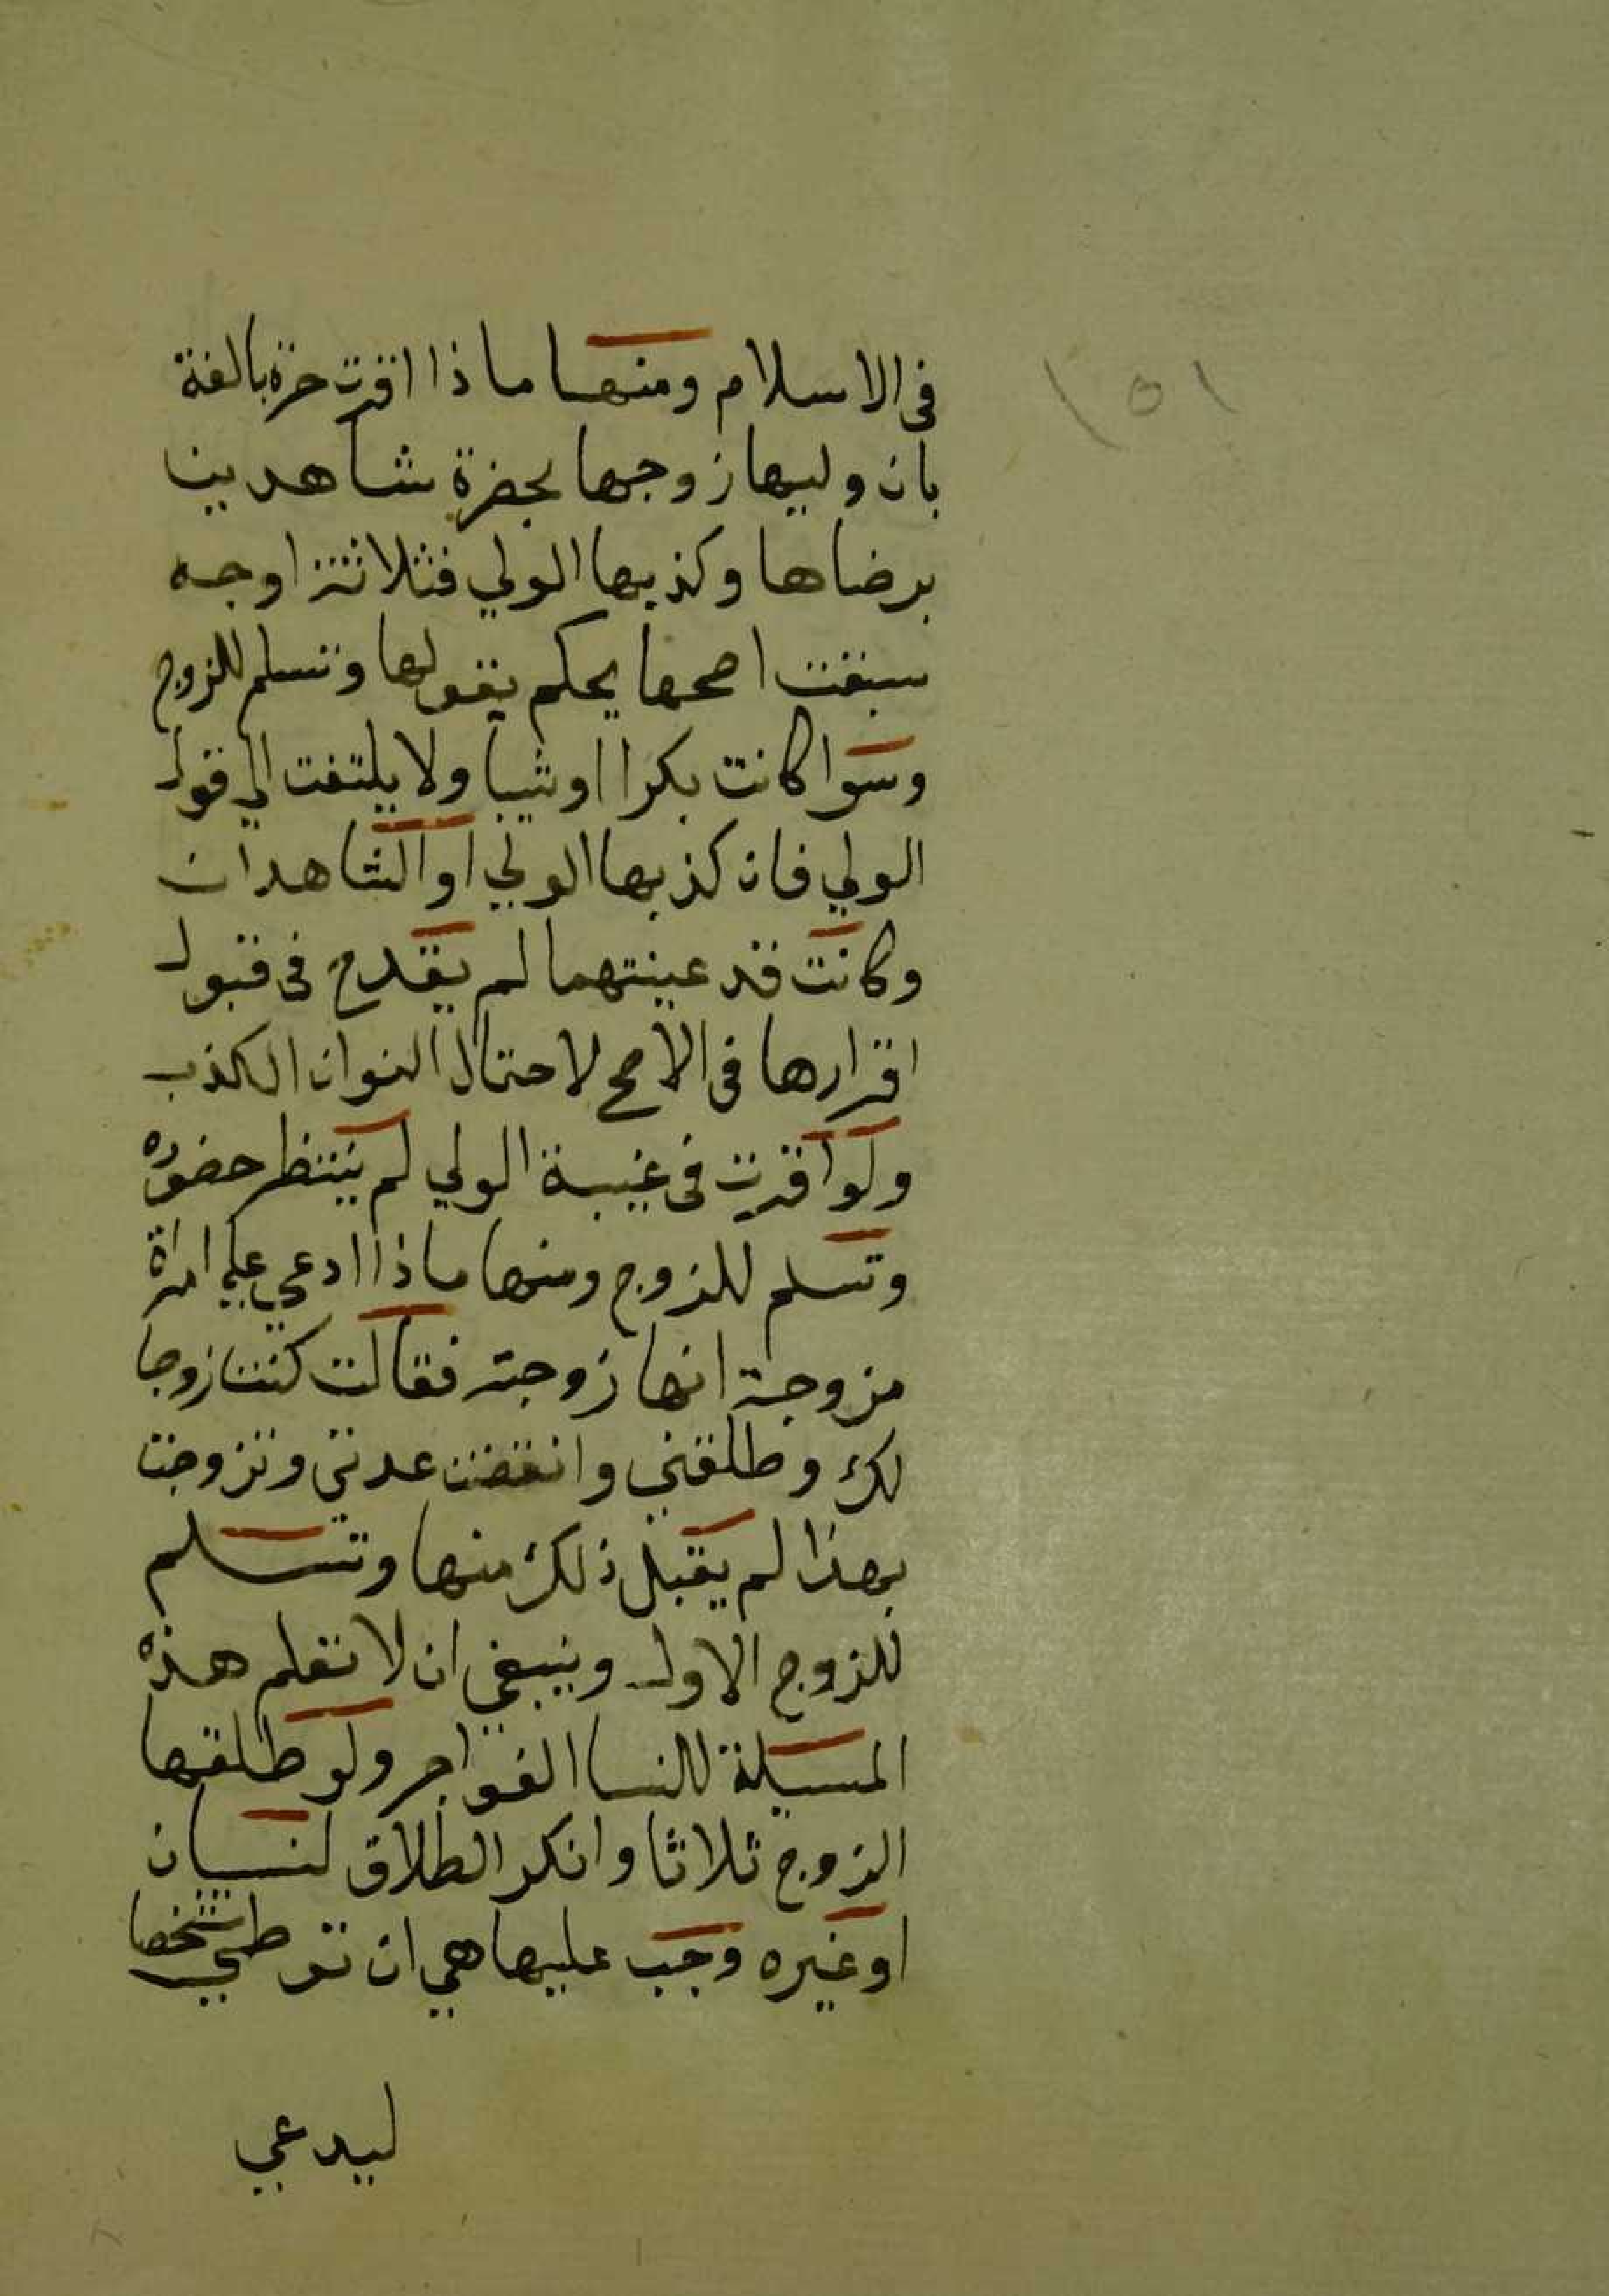 ١٥١
فى الاسلام ومنها ما ذا اقرت حرة بالغة
بان وليها زوجها بحضرة شاهدين
برضاها وكذبها الولي فثلاثة اوجه
سبقت اصحها يحكم بقولها وتسلم للزوج
وسوا كانت بكرا او ثيبا ولا يلتفت الي قول
الولي فان كذبها الولي او الشاهدان
وكانت قد عينتهما لم يقدح فى قبول
اقرارها فى الاصح لاحتمال النوان الكذب
ولو اقرت فى غيبة الولي لم ينتظر حضوره
وتسلم للزوج ومنها ما ذا ادعي علي امراة
مزوجة انها زوجته فقالت كنت زوجا
لك وطلقني وانقضت عدتي وتزوجت
بهذا لم يقبل ذلك منها وتسلم
للزوج الاول وينبغي ان لا تعلم هذه
المسيلة للنسا الفواجر ولو طلقها
الزوج ثلاثا وانكر الطلاق لنسان
او غيره وجب عليها هي ان توطي شخصا
ليدعي